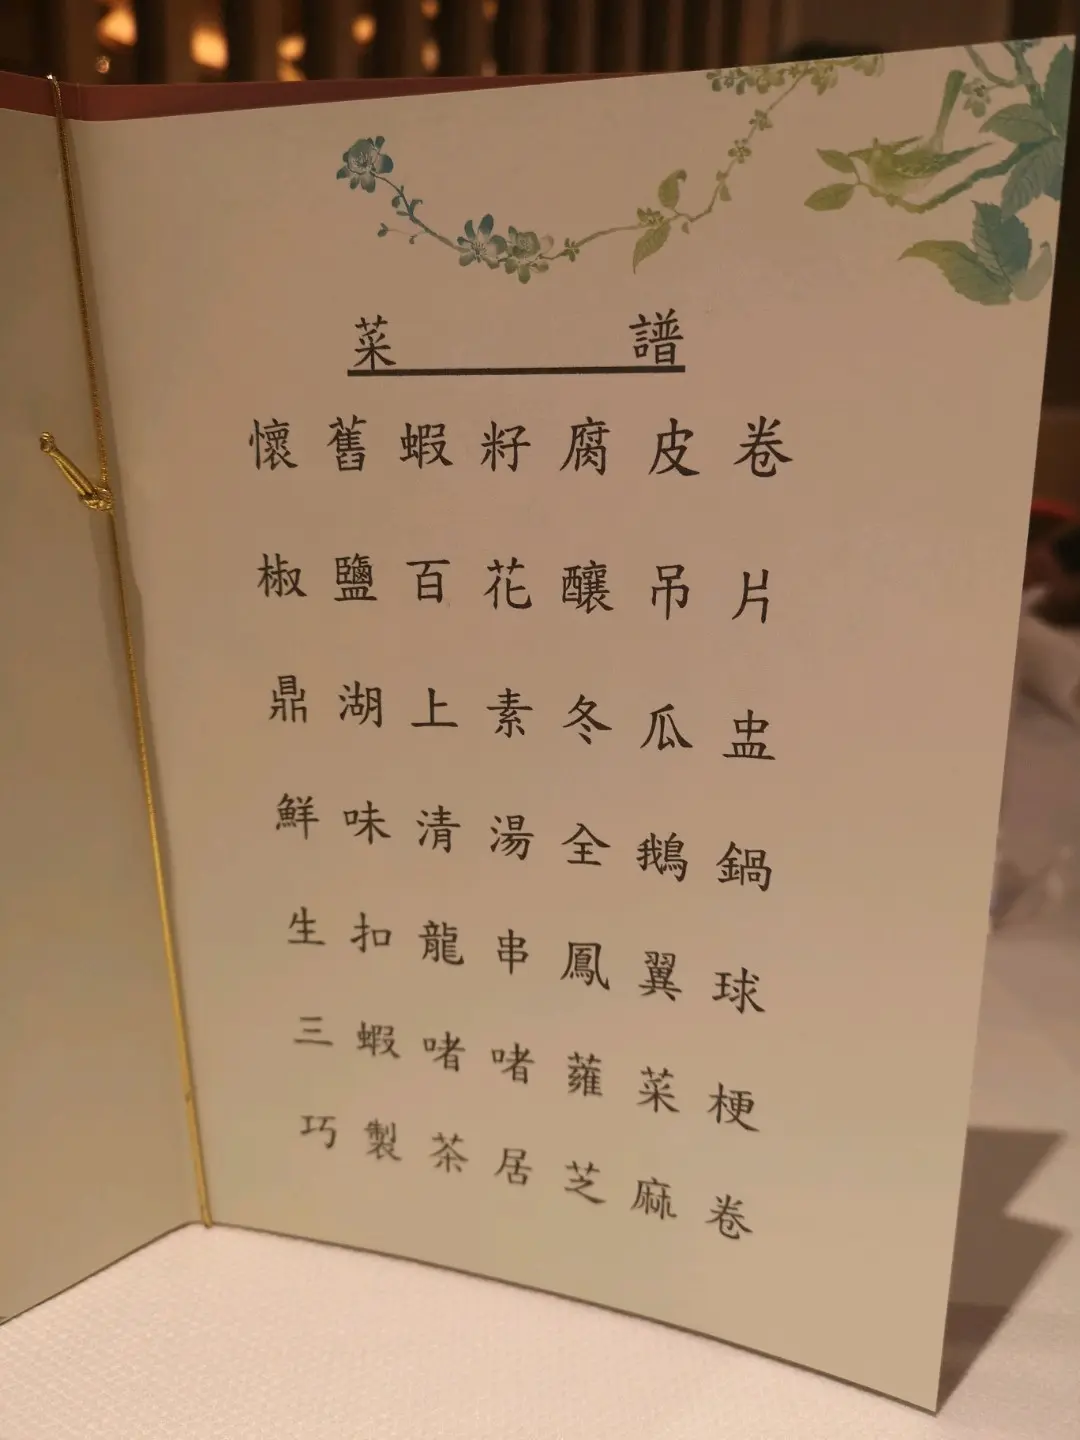 菜譜
懷舊蝦籽腐皮卷
椒鹽百花釀吊片
鼎湖上素冬瓜盅
鮮味清湯全鵝鍋
生扣龍串鳳翼球
三蝦啫啫蕹菜梗
巧製茶居芝麻卷